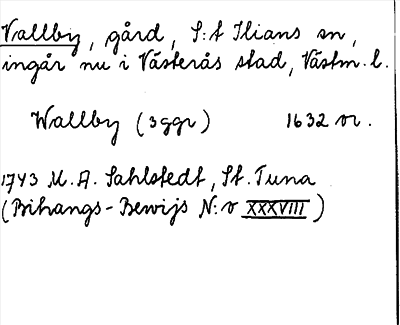 Vallby, gård, S:t Ilians sn,
ingår nu i Västerås stad, Västm. l.
Wallby (3 ggr) 1632 or.
1743 M. A. Sahlstedt, St. Tuna
(Bihangs-Bewijs N:o XXXVIII)